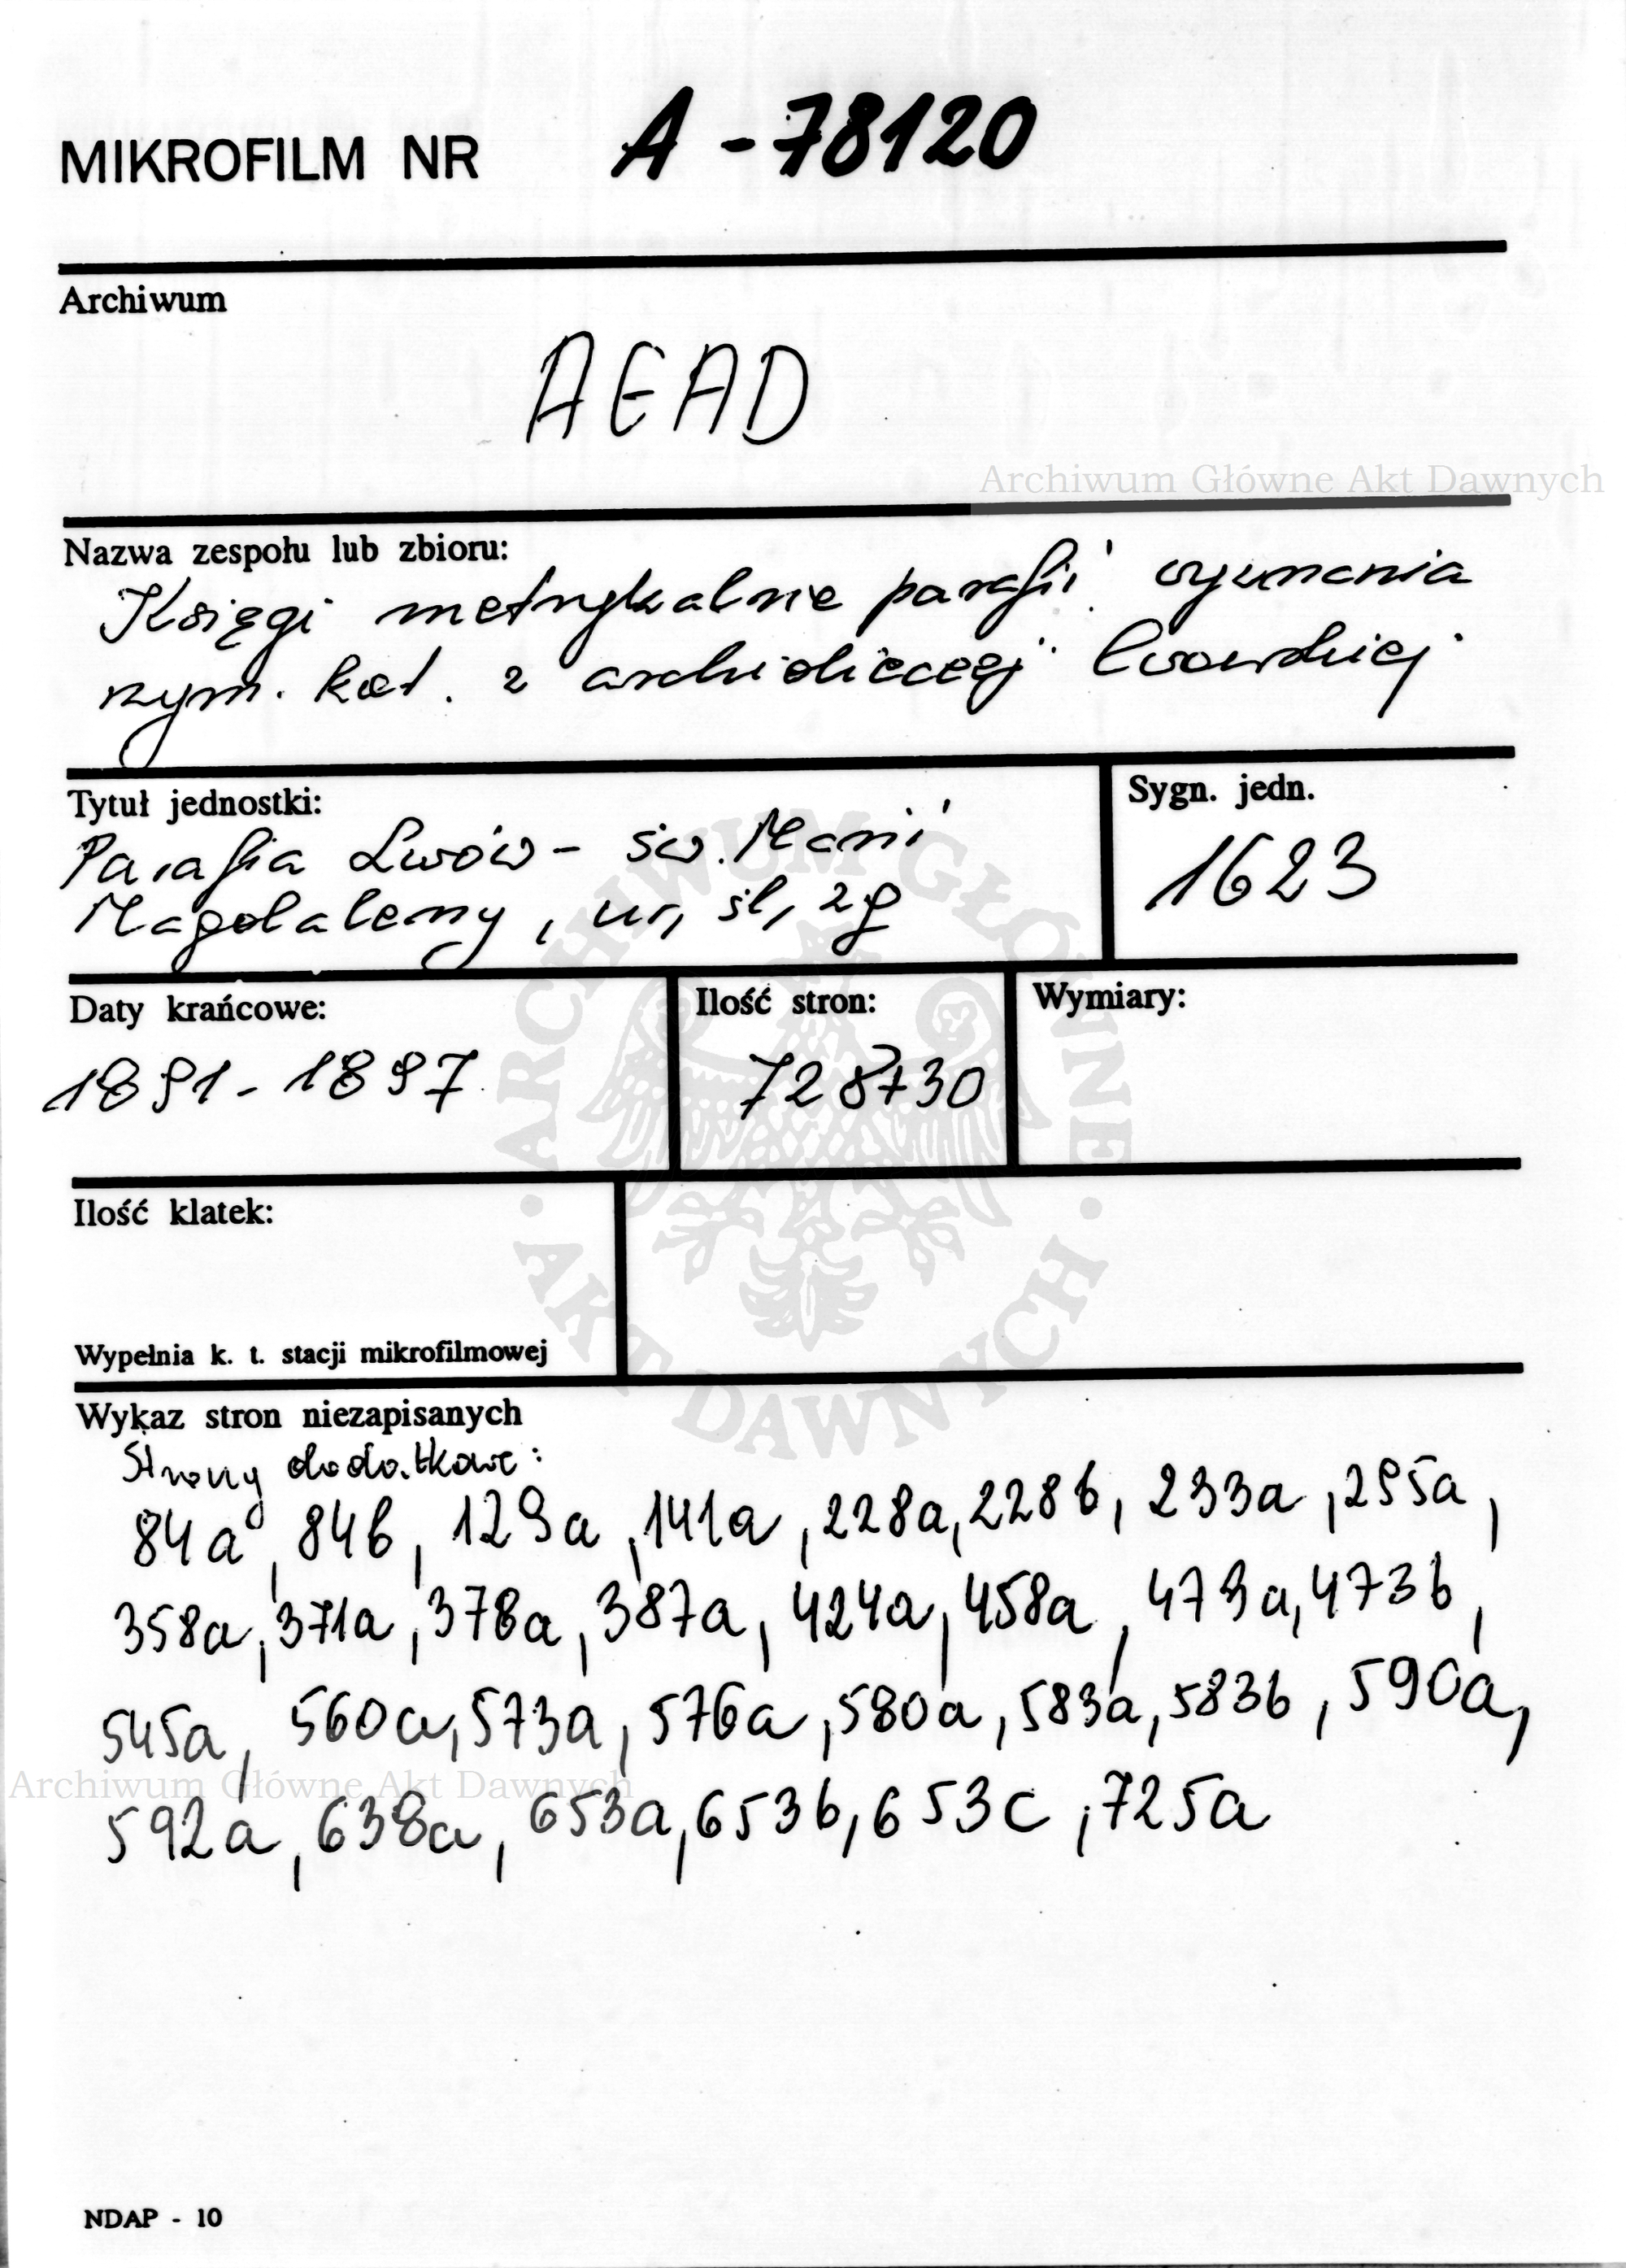 MIKROFILM NR A-78120
Archiwum
AGAD
Archiwum Główne Akt Dawnych
Nazwa zespołu lub zbioru:
Księgi metrykalne parafii wyznania
rzym. kat. z archidiecezji lwowskiej
Tytuł jednostki:
Parafia Lwów - św. Marii
Magdaleny, ur, śl, zg
Sygn. jedn.
1623
Daty krańcowe:
1891-1897
Ilość stron:
728+30
Wymiary:
Ilość klatek:
Wypełnia k. t. stacji mikrofilmowej
ARCHIWUM GŁÓWNE · AKT DAWNYCH ·
Wykaz stron niezapisanych
Strony dodatkowe:
84a, 84b, 129a, 141a, 228a, 228b, 233a, 295a,
358a, 371a, 378a, 387a, 424a, 458a, 473a, 473b,
545a, 560a, 573a, 576a, 580a, 583a, 583b, 590a,
Archiwum Główne Akt Dawnych
592a, 638a, 653a, 653b, 653c, 725a
NDAP - 10